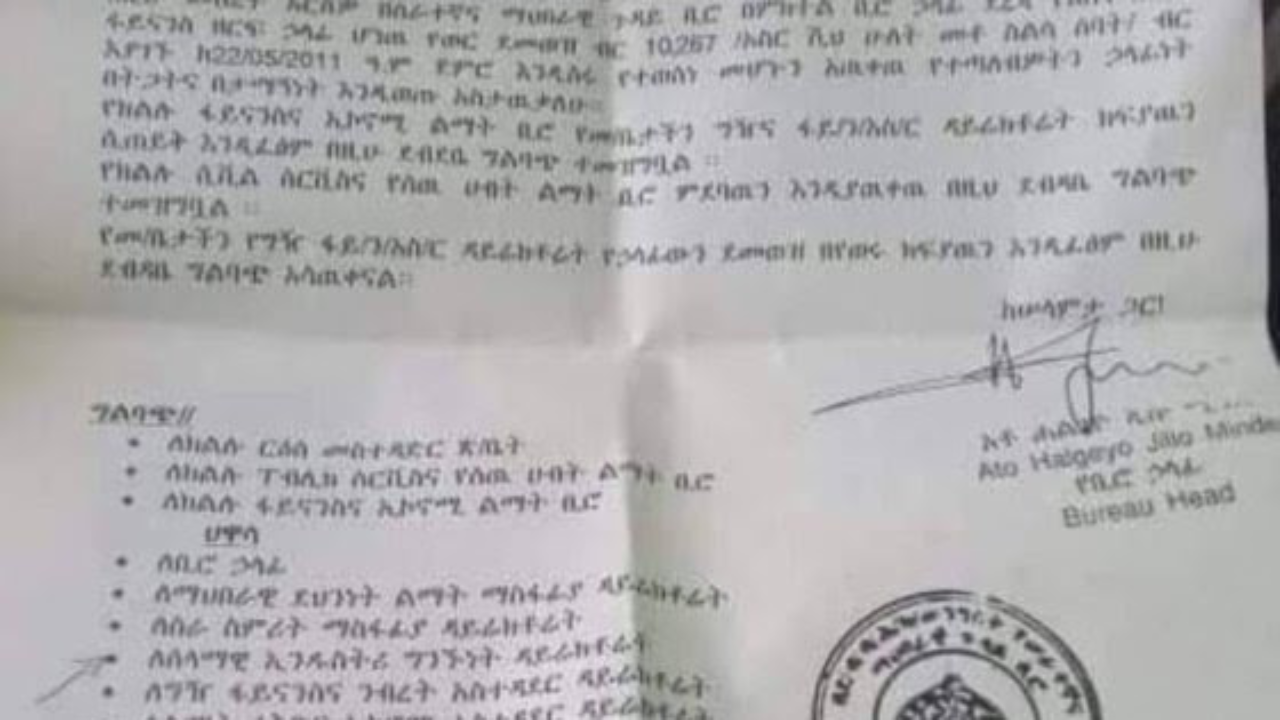 ፋይናንስ ዘርፍ ኃላፊ ሆነዉ የወር ደመወዝ ብር 10,267 /አስር ሺህ ሁለት መቶ ስልሳ ሰባት/ ብር
እያገኙ ከ22/05/2011 ዓ.ም ጀምሮ እንዲሰሩ የተወሰነ መሆኑን አዉቀዉ የተጣለብዎትን ኃላፊነት
በትጋትና በታማኝነት እንዲወጡ አስታዉቃለሁ።
የክልሉ ፋይናንስና ኢኮኖሚ ልማት ቢሮ የመ/ቤታችን ግዥና ፋይ/ን/አስ/ር ዳይሬክቶሬት ክፍያዉን
ሲጠይቅ እንዲፈፅም በዚሁ ደብዳቤ ግልባጭ ተመዝግቧል ።
የክልሉ ሲቪል ሰርቪስና የሰዉ ሀብት ልማት ቢሮ ምደባዉን እንዲያዉቀዉ በዚህ ደብዳቤ ግልባጭ
ተመዝግቧል ።
የመ/ቤታችን የግዥ ፋይ/ን/አስ/ር ዳይሬክቶሬት የኃላፊውን ደመወዝ በየወሩ ክፍያዉን እንዲፈፅም በዚሁ
ደብዳቤ ግልባጭ አሳዉቀናል።
ከሠላምታ ጋር!
አቶ
Ato Halgeyo Jillo Minde
የቢሮ ኃላፊ
Bureau Head
ግልባጭ//
• ለክልሉ ርዕሰ መስተዳድር ጽ/ቤት
• ለክልሉ ፐብሊክ ሰርቪስና የሰዉ ሀብት ልማት ቢሮ
• ለክልሉ ፋይናንስና ኢኮኖሚ ልማት ቢሮ
ሀዋሳ
• ለቢሮ ኃላፊ
• ለማህበራዊ ደህንነት ልማት ማስፋፊያ ዳይሬክቶሬት
• ለስራ ስምሪት ማስፋፊያ ዳይሬክቶሬት
• ለሰላማዊ ኢንዱስትሪ ግንኙነት ዳይሬክቶሬት
• ለግዥ ፋይናንስና ንብረት አስተዳደር ዳይሬክቶሬት